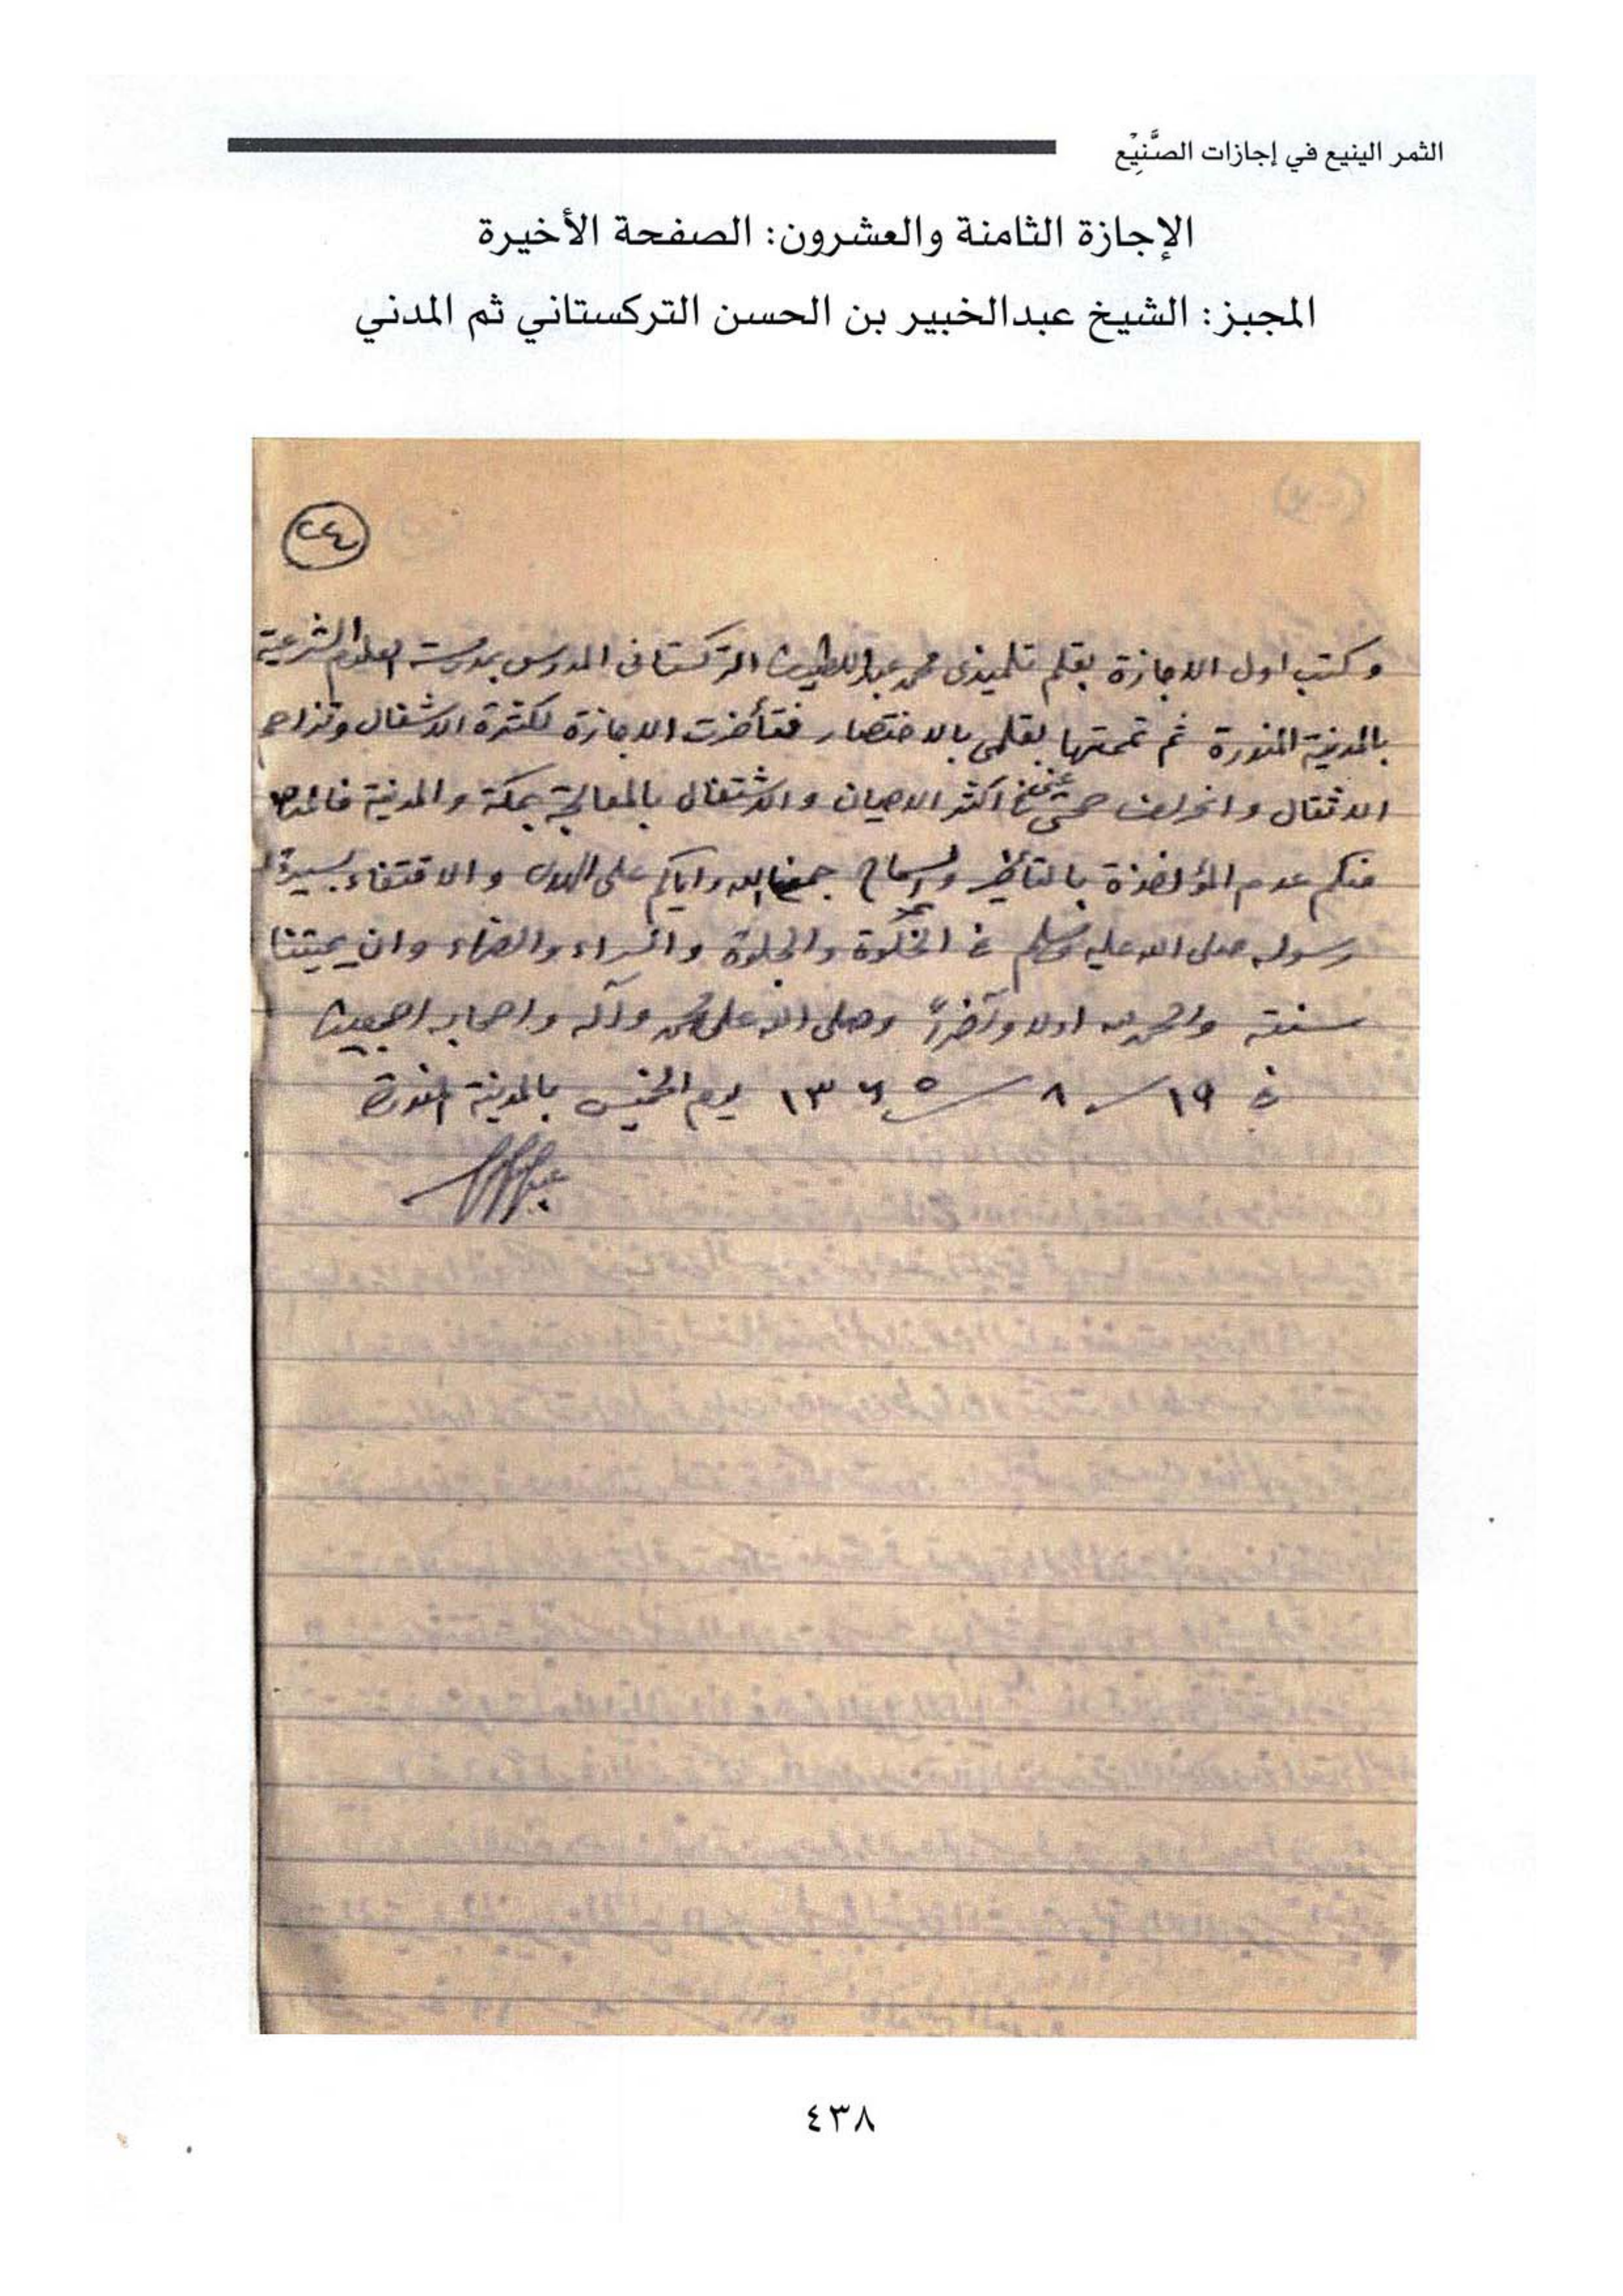 الثمر الينيع في إجازات الصَّنِيْع
الإجازة الثامنة والعشرون: الصفحة الأخيرة
المجيز: الشيخ عبدالخبير بن الحسن التركستاني ثم المدني
٢٤
وكتب اول الاجازة بقلم تلميذى محمد عبد اللطيف التركستانى المدرس بمدرسة العلوم الشرعية
بالمدينة المنورة ثم تممتها بقلمى بالاختصار فتأخرت الاجازة لكثرة الاشغال وتزاحم
الاثقال وانحراف صحتى فى اكثر الاحيان والاشتغال بالمعالجة بمكة والمدينة فالمرجو
منكم عدم المؤاخذة بالتأخر والسماح جمعنا الله واياكم على الهدى والاقتفاء بسيرة
رسوله صلى الله عليه وسلم فى الخلوة والجلوة والسراء والضراء وان يميتنا
سنته والحمد لله اولا وآخرًا وصلى الله على محمد وآله واصحابه اجمعين
فى ١٩ ـ ٨ ـ ١٣٦٥ يوم الخميس بالمدينة المنورة
٤٣٨